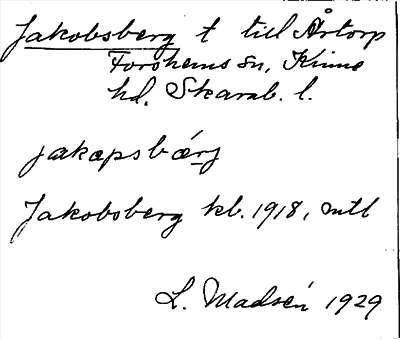 Jakobsberg t till Årtorp
Forshems sn, Kinne
hd. Skarab. l.
jakapsbærj
Jakobsberg kb. 1918, mtl
L. Madsén 1929